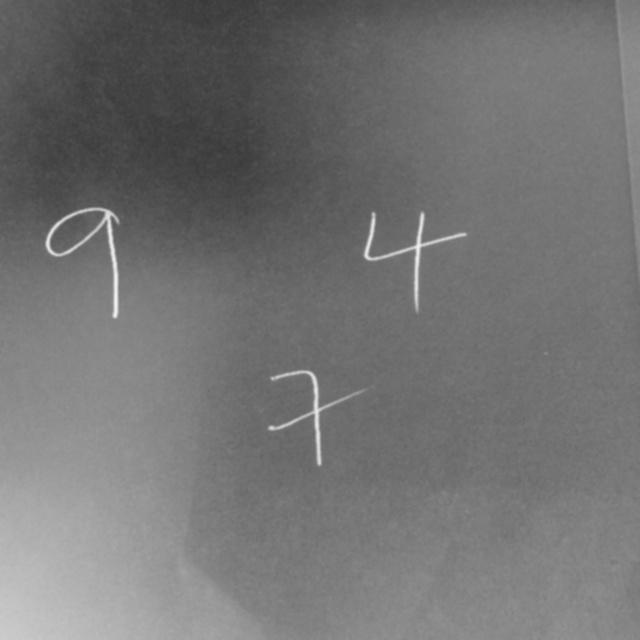 9 4
7